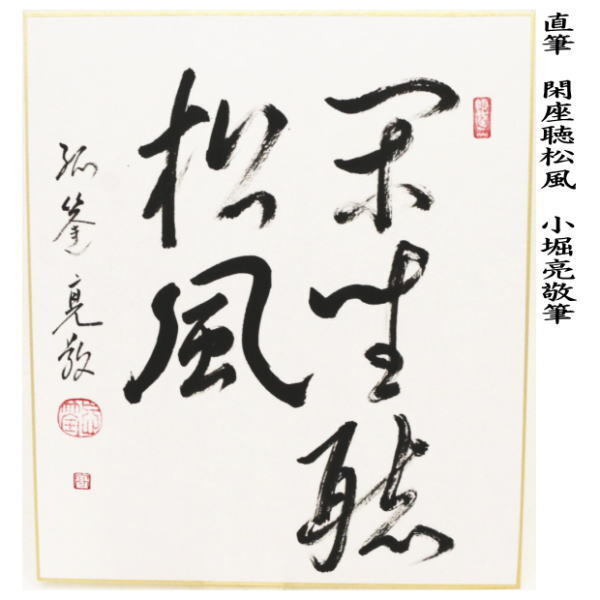 直筆 閑座聴松風 小堀亮敬筆
閑坐聴
松風
孤篷亮敬